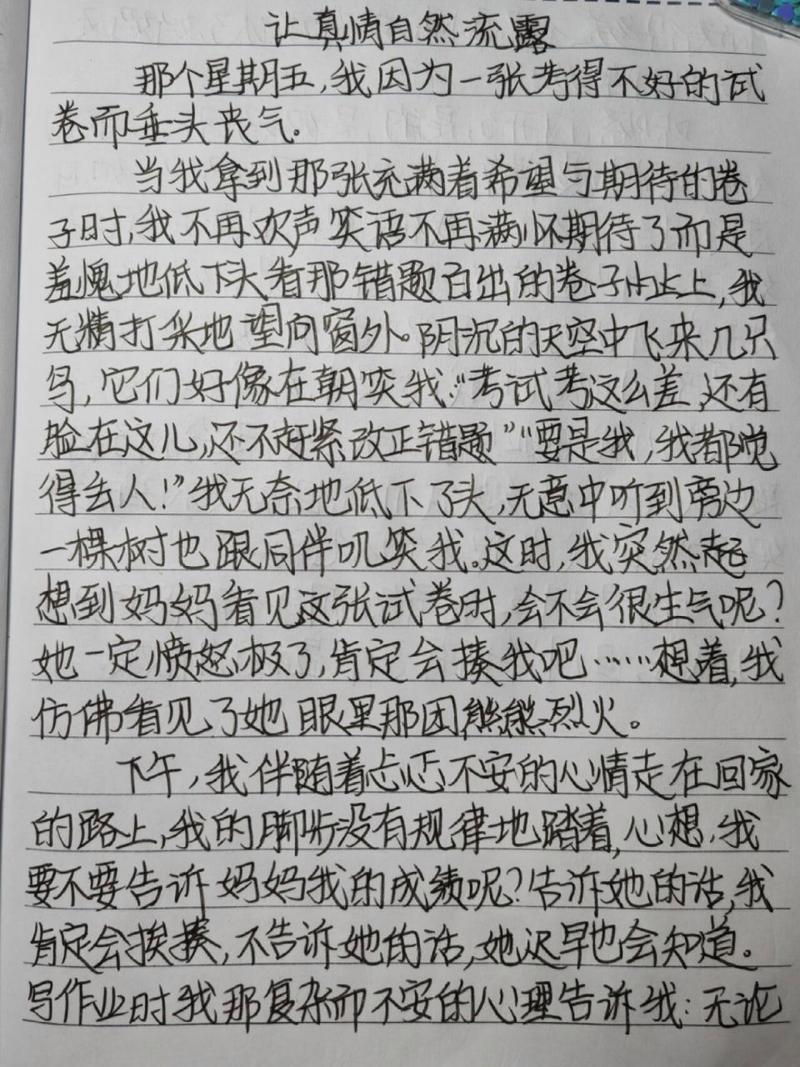 让真情自然流露
那个星期五,我因为一张考得不好的试
卷而垂头丧气。
当我拿到那张充满着希望与期待的卷
子时,我不再欢声笑语不再满怀期待了而是
羞愧地低下头看那错题百出的卷子上,我
无精打采地望向窗外。阴沉的天空中飞来几只
鸟,它们好像在朝笑我:“考试考这么差,还有
脸在这儿,还不赶紧改正错题”“要是我,我都觉
得丢人!”我无奈地低下了头,无意中听到旁边
一棵树也跟同伴叽笑我。这时,我突然起
想到妈妈看见这张试卷时,会不会很生气呢?
她一定愤怒极了,肯定会揍我吧……想着,我
仿佛看见了她眼里那团熊熊烈火。
下午,我伴随着忐忑不安的心情走在回家
的路上,我的脚步没有规律地踏着,心想,我
要不要告诉妈妈我的成绩呢?告诉她的话,我
肯定会挨揍,不告诉她的话,她迟早也会知道。
写作业时我那复杂而不安的心理告诉我:无论